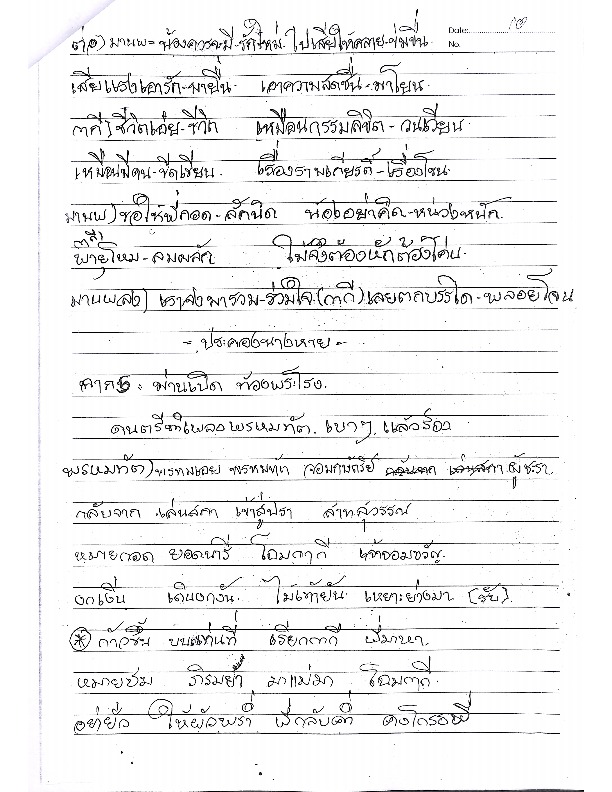 Date: 10
No.
ต่อ) มานพ = น้องควรจะมี - รักใหม่ ไปเสียให้คลาย - ขมขื่น
เสียแรงเอารัก - มายื่น เอาความสดชื่น - มาโยน
กากี) ชีวิตเอ๋ย - ชีวิต เหมือนกรรมลิขิต - วนเวียน
เหมือนมีคน - ขีดเขียน เรื่องรามเกียรติ์ - เรื่องโขน
มานพ) ขอให้พี่กอด - สักนิด น้องอย่าคิด - หน่วงหนัก
(กากี) พายุโหม - ลมผลัก ไม่จึงต้องหักต้องโค่น
มานพ(ส่ง) เราส่งมารวม - ร่วมใจ (กากี) เลยตกบรรได - พลอยโจน
- ประคองนางหาย -
ฉาก 5 : ม่านเปิด ท้องพระโรง
ดนตรีทำเพลงพรหมทัต เบาๆ แล้วร้อง
พรหมทัต) พรหมเอย พรหมทัต จอมกษัตริย์ ผู้ชรา
กลับจาก เล่นสกา เข้าสู่ปรา สาทสุวรรณ
หมายกอด ยอดนารี โฉมกากี เจ้าจอมขวัญ
งกเงิ่น เดินงกงัน ไม้เท้ายัน เหยาะย่างมา (รับ)
* ก้าวขึ้น บนแท่นที่ เรียกกากี พี่มาหา
หมายชม ภิรมย์ มาแม่มา โฉมกากี
อย่ายั่ว ให้ผัวพร่ำ พี่กลับค่ำ คงโกรธพี่